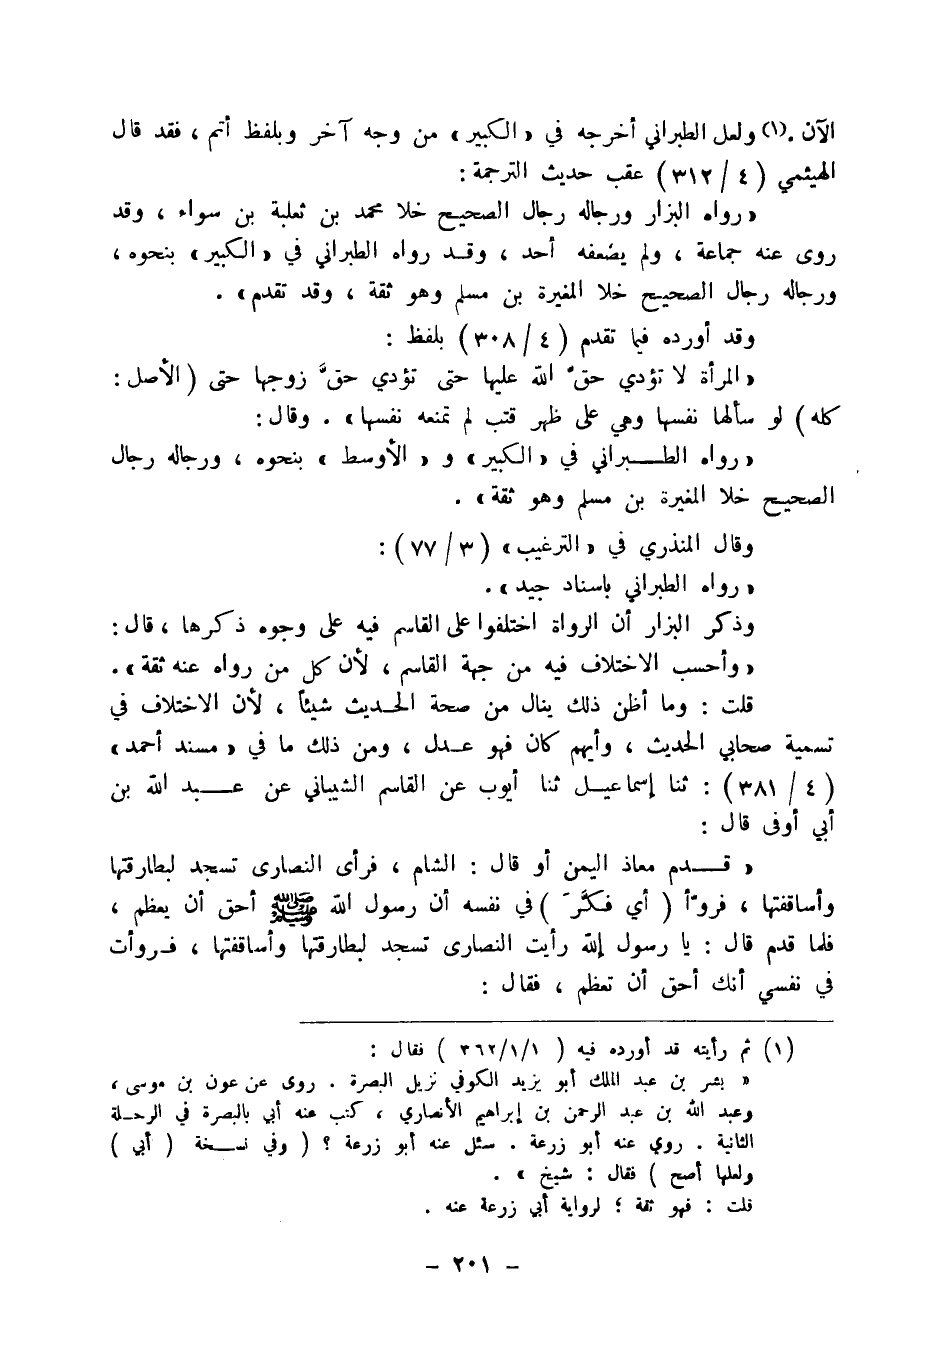 الآن .(١) ولعل الطبراني أخرجه في « الكبير » من وجه آخر وبلفظ أتم ، فقد قال
الهيثمي ( ٤ / ٣١٢ ) عقب حديث الترجمة :
« رواه البزار ورجاله رجال الصحيح خلا محمد بن ثعلبة بن سواء ، وقد
روى عنه جماعة ، ولم يضعفه أحد ، وقد رواه الطبراني في « الكبير » بنحوه ،
ورجاله رجال الصحيح خلا المغيرة بن مسلم وهو ثقة ، وقد تقدم » .
وقد أورده فيما تقدم ( ٤ / ٣٠٨ ) بلفظ :
« المرأة لا تؤدي حقَّ الله عليها حتى تؤدي حقَّ زوجها حتى ( الأصل :
كله ) لو سألها نفسها وهي على ظهر قتب لم تمنعه نفسها » . وقال :
« رواه الطبراني في « الكبير » و « الأوسط » بنحوه ، ورجاله رجال
الصحيح خلا المغيرة بن مسلم وهو ثقة » .
وقال المنذري في « الترغيب » ( ٣ / ٧٧ ) :
« رواه الطبراني باسناد جيد » .
وذكر البزار أن الرواة اختلفوا على القاسم فيه على وجوه ذكرها ، قال :
« وأحسب الاختلاف فيه من جهة القاسم ، لأن كل من رواه عنه ثقة » .
قلت : وما أظن ذلك ينال من صحة الحديث شيئاً ، لأن الاختلاف في
تسمية صحابي الحديث ، وأيهم كان فهو عدل ، ومن ذلك ما في « مسند أحمد »
( ٤ / ٣٨١ ) : ثنا إسماعيل ثنا أيوب عن القاسم الشيباني عن عبد الله بن
أبي أوفى قال :
« قدم معاذ اليمن أو قال : الشام ، فرأى النصارى تسجد لبطارقتها
وأساقفتها ، فروّأ ( أي فكَّرَ ) في نفسه أن رسول الله ﷺ أحق أن يعظم ،
فلما قدم قال : يا رسول الله رأيت النصارى تسجد لبطارقتها وأساقفتها ، فروأت
في نفسي أنك أحق أن تعظم ، فقال :
(١) ثم رأيته قد أورده فيه ( ٣٦٢/١/١ ) فقال :
« بشر بن عبد الملك أبو يزيد الكوفي نزيل البصرة . روى عن عون بن موسى ،
وعبد الله بن عبد الرحمن بن إبراهيم الأنصاري ، كتب عنه أبي بالبصرة في الرحلة
الثانية . روي عنه أبو زرعة . سئل عنه أبو زرعة ؟ ( وفي نسخة ( أبي )
ولعلها أصح ) فقال : شيخ » .
قلت : فهو ثقة ؛ لرواية أبي زرعة عنه .
- ٢٠١ -